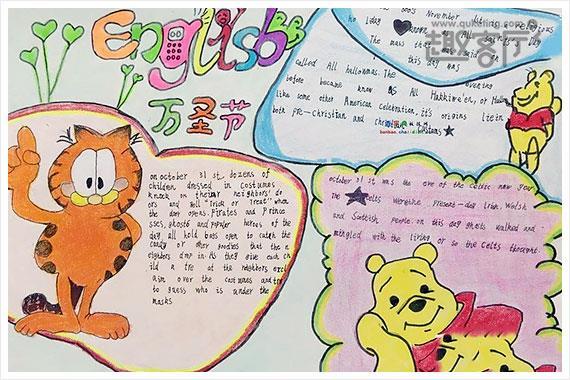 English
万圣节
November
this day was
called All hallowmas. The evening
before became know as All Hakkiwe'en, or
like some other American Celebration, it's origins lie in
both pre-Christian and
on october 31 st, dozens of
children, dressed in costumes
knock on their neighbors' do
ors and yell "Trick or Treat" when
the door opens. Pirates and Prince
sses, ghosts and popular heroes of the
day all hold bags open to catch the
candy or other goodies that the n
eighbors drop in. As they give each chi
ld a tre at the neighbors excl
aim over the costumes and try
to guess who is under the
masks
october 31 st was the eve of the Celtic new year
The Celts were the present-day Irish, Welsh
and Scottish people on this day ghosts walked and
mingled with the living or so the Celts thought.
趣客厅